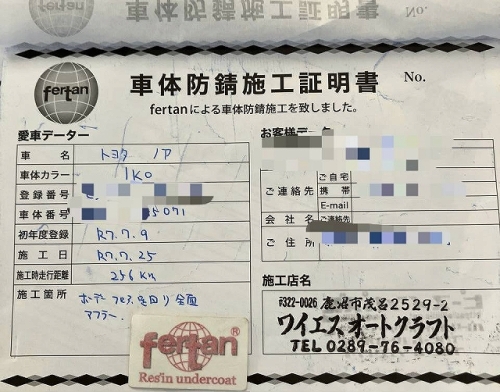 fertan
車体防錆施工証明書
No.
fertanによる車体防錆施工を致しました。
愛車データー
車 名 トヨタ ノア
車体カラー 1K0
登録番号
車体番号 5071
初年度登録 R7.7.9
施工日 R7.7.25
施工時走行距離 256 Km
施工箇所 ボデー 下回り 全面
アフター.
お客様データ
ご自宅
ご連絡先 携帯
E-mail
会社名 ご連絡先
ご住所
施工店名
〒322-0026 鹿沼市茂呂2529-2
ワイエスオートクラフト
TEL 0289-76-4080
fertan®
Res'in undercoat